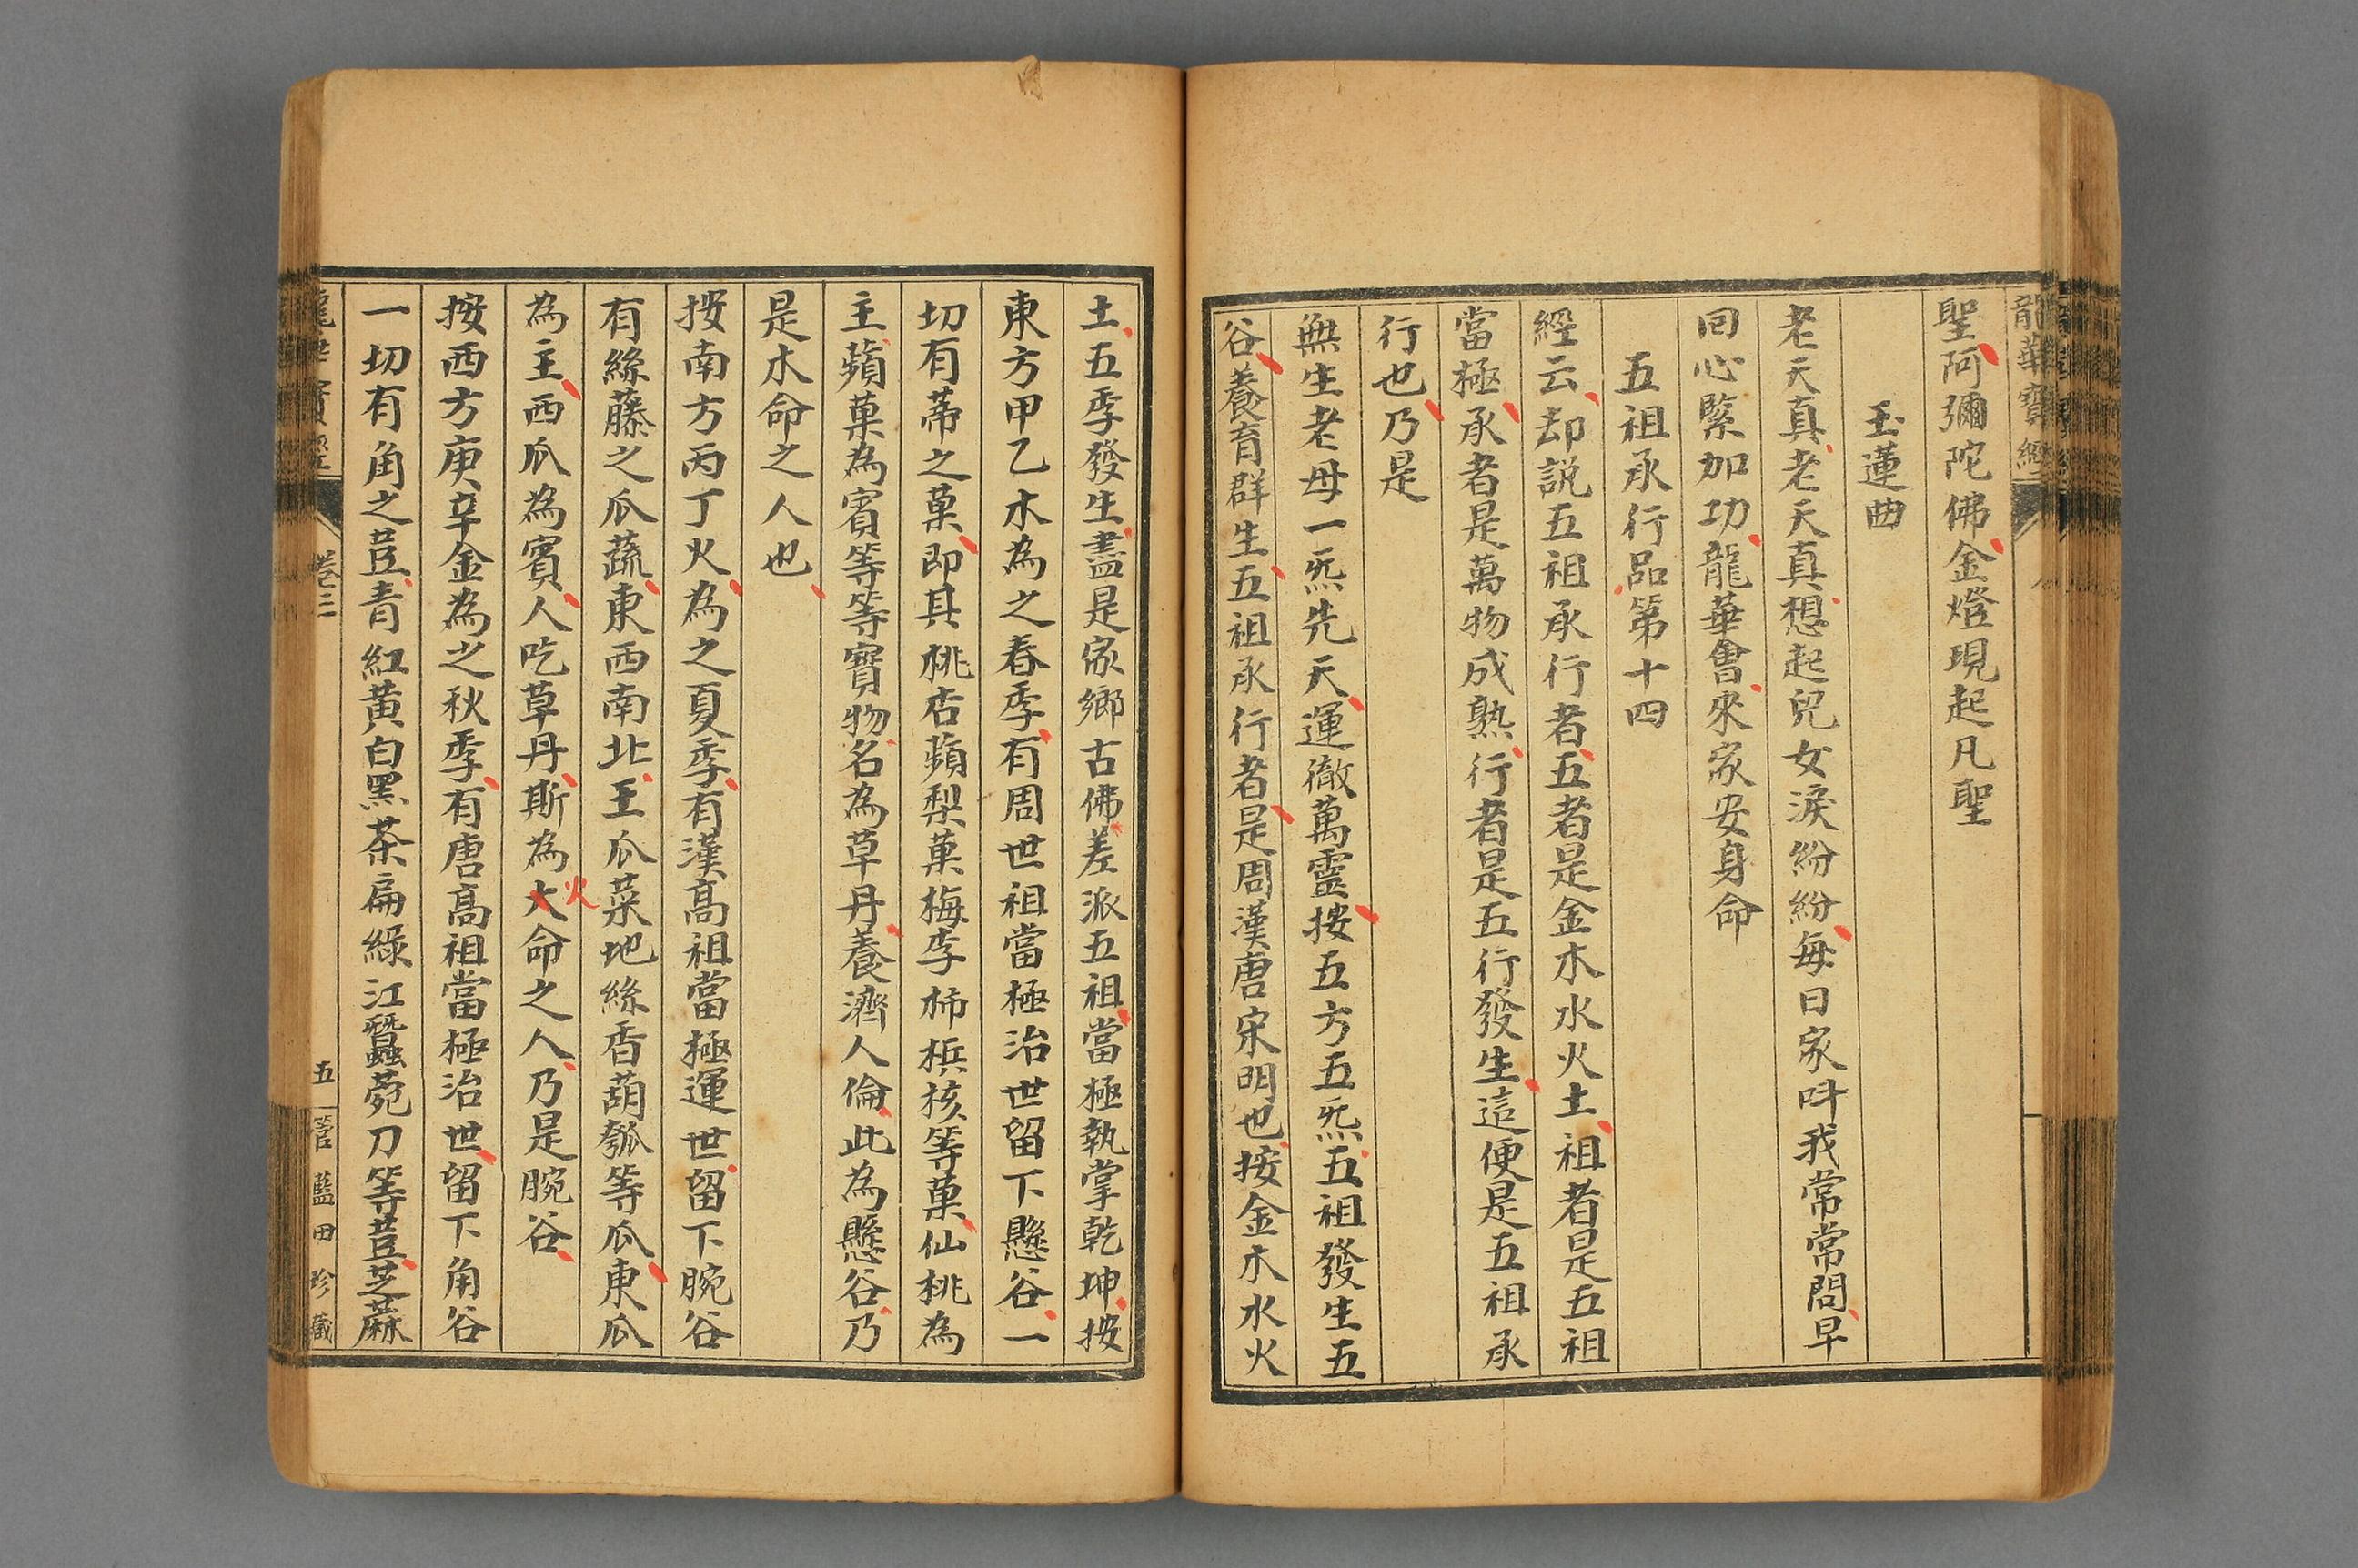 龍華寶經
聖阿彌陀佛金燈現起凡聖
玉蓮曲
老天真老天真想起兒女淚紛紛每日家呌我常常問早
回心緊加功龍華會來家安身命
五祖承行品第十四
經云却説五祖承行者五者是金木水火土祖者是五祖
當極承者是萬物成熟行者是五行發生這便是五祖承
行也乃是
無生老母一炁先天運徹萬靈按五方五炁五祖發生五
谷養育群生五祖承行者是周漢唐宋明也按金木水火
土五季發生盡是家鄉古佛差派五祖當極執掌乾坤按
東方甲乙木為之春季有周世祖當極治世留下懸谷一
切有蒂之菓即具桃杏蘋梨菓梅李柿梹核等菓仙桃為
主蘋菓為賓等等寶物名為草丹養濟人倫此為懸谷乃
是木命之人也
按南方丙丁火為之夏季有漢高祖當極運世留下腕谷
有絲藤之瓜蔬東西南北王瓜菜地絲香葫瓠等瓜東瓜
為主西瓜為賓人吃草丹斯為大火命之人乃是腕谷
按西方庚辛金為之秋季有唐高祖當極治世留下角谷
一切有角之荳青紅黃白黑茶扁綠江蠶菀刀等荳芝蔴
龍華寶經
卷三
五
管藍田珍藏